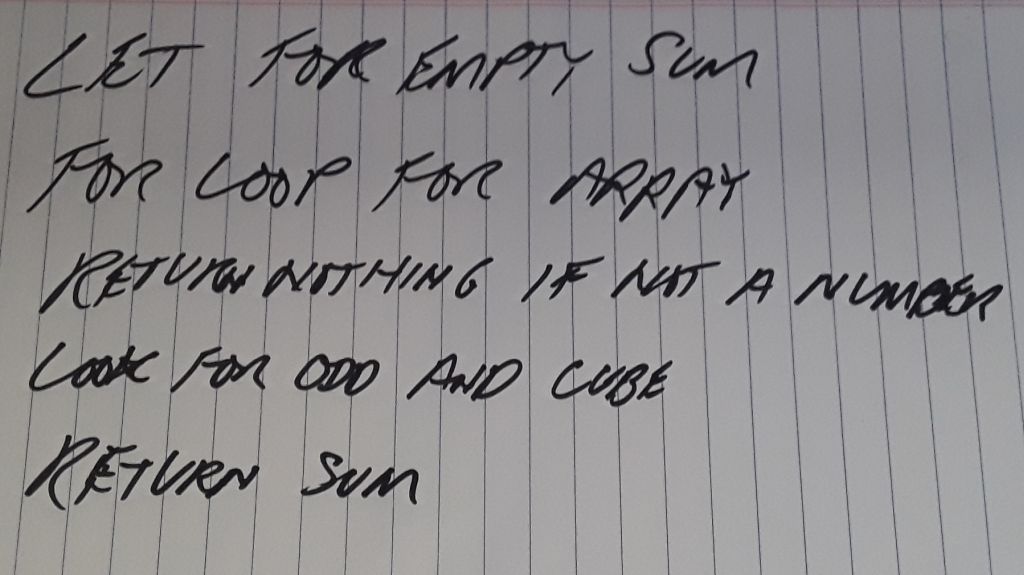 LET FOR EMPTY SUM
FOR LOOP FOR ARRAY
RETURN NOTHING IF NOT A NUMBER
LOOK FOR ODD AND CUBE
RETURN SUM